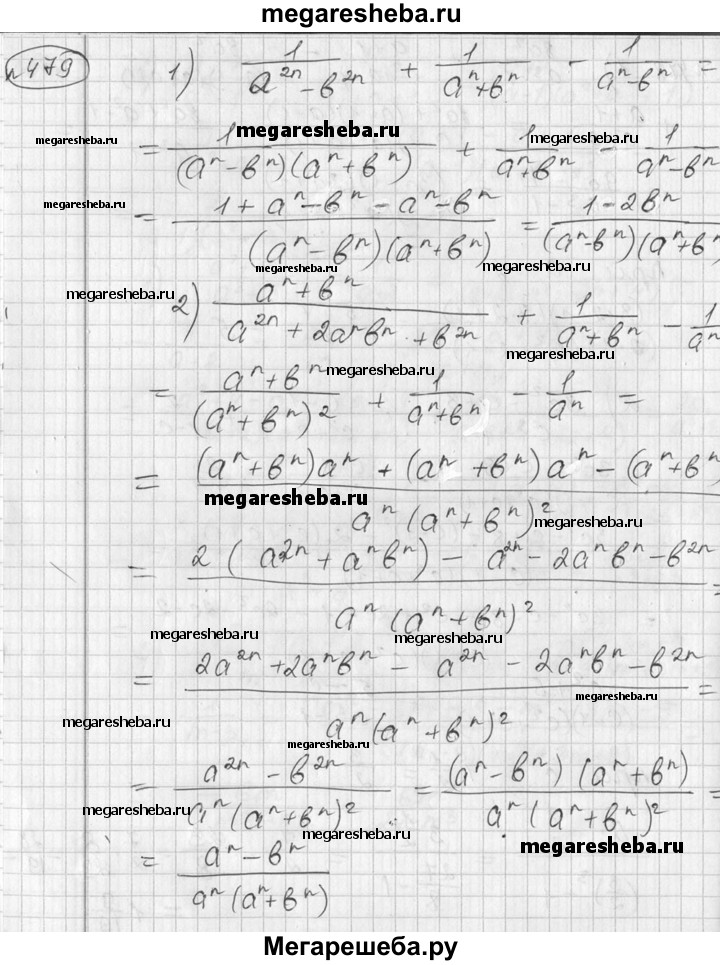 megaresheba.ru
№479 1) 1/(a^(2n) - в^(2n)) + 1/(a^n + в^n) - 1/(a^n - в^n) =
megaresheba.ru megaresheba.ru megaresheba.ru
= 1/((a^n - в^n)(a^n + в^n)) + 1/(a^n + в^n) - 1/(a^n - в^n)
megaresheba.ru
= (1 + a^n - в^n - a^n - в^n)/((a^n - в^n)(a^n + в^n)) = (1 - 2в^n)/((a^n - в^n)(a^n + в^n)
megaresheba.ru megaresheba.ru
megaresheba.ru
2) (a^n + в^n)/(a^(2n) + 2a^n в^n + в^(2n)) + 1/(a^n + в^n) - 1/a^n
megaresheba.ru
megaresheba.ru
= (a^n + в^n)/(a^n + в^n)^2 + 1/(a^n + в^n) - 1/a^n =
megaresheba.ru
= ((a^n + в^n)a^n + (a^n + в^n)a^n - (a^n + в^n)/(a^n (a^n + в^n)^2)
megaresheba.ru megaresheba.ru
= (2(a^(2n) + a^n в^n) - a^(2n) - 2a^n в^n - в^(2n))/(a^n (a^n + в^n)^2) =
megaresheba.ru megaresheba.ru
= (2a^(2n) + 2a^n в^n - a^(2n) - 2a^n в^n - в^(2n))/(a^n (a^n + в^n)^2) =
megaresheba.ru
megaresheba.ru megaresheba.ru
= (a^(2n) - в^(2n))/(a^n (a^n + в^n)^2) = ((a^n - в^n)(a^n + в^n))/(a^n (a^n + в^n)^2) =
megaresheba.ru megaresheba.ru megaresheba.ru
= (a^n - в^n)/(a^n (a^n + в^n))
Мегарешеба.ру